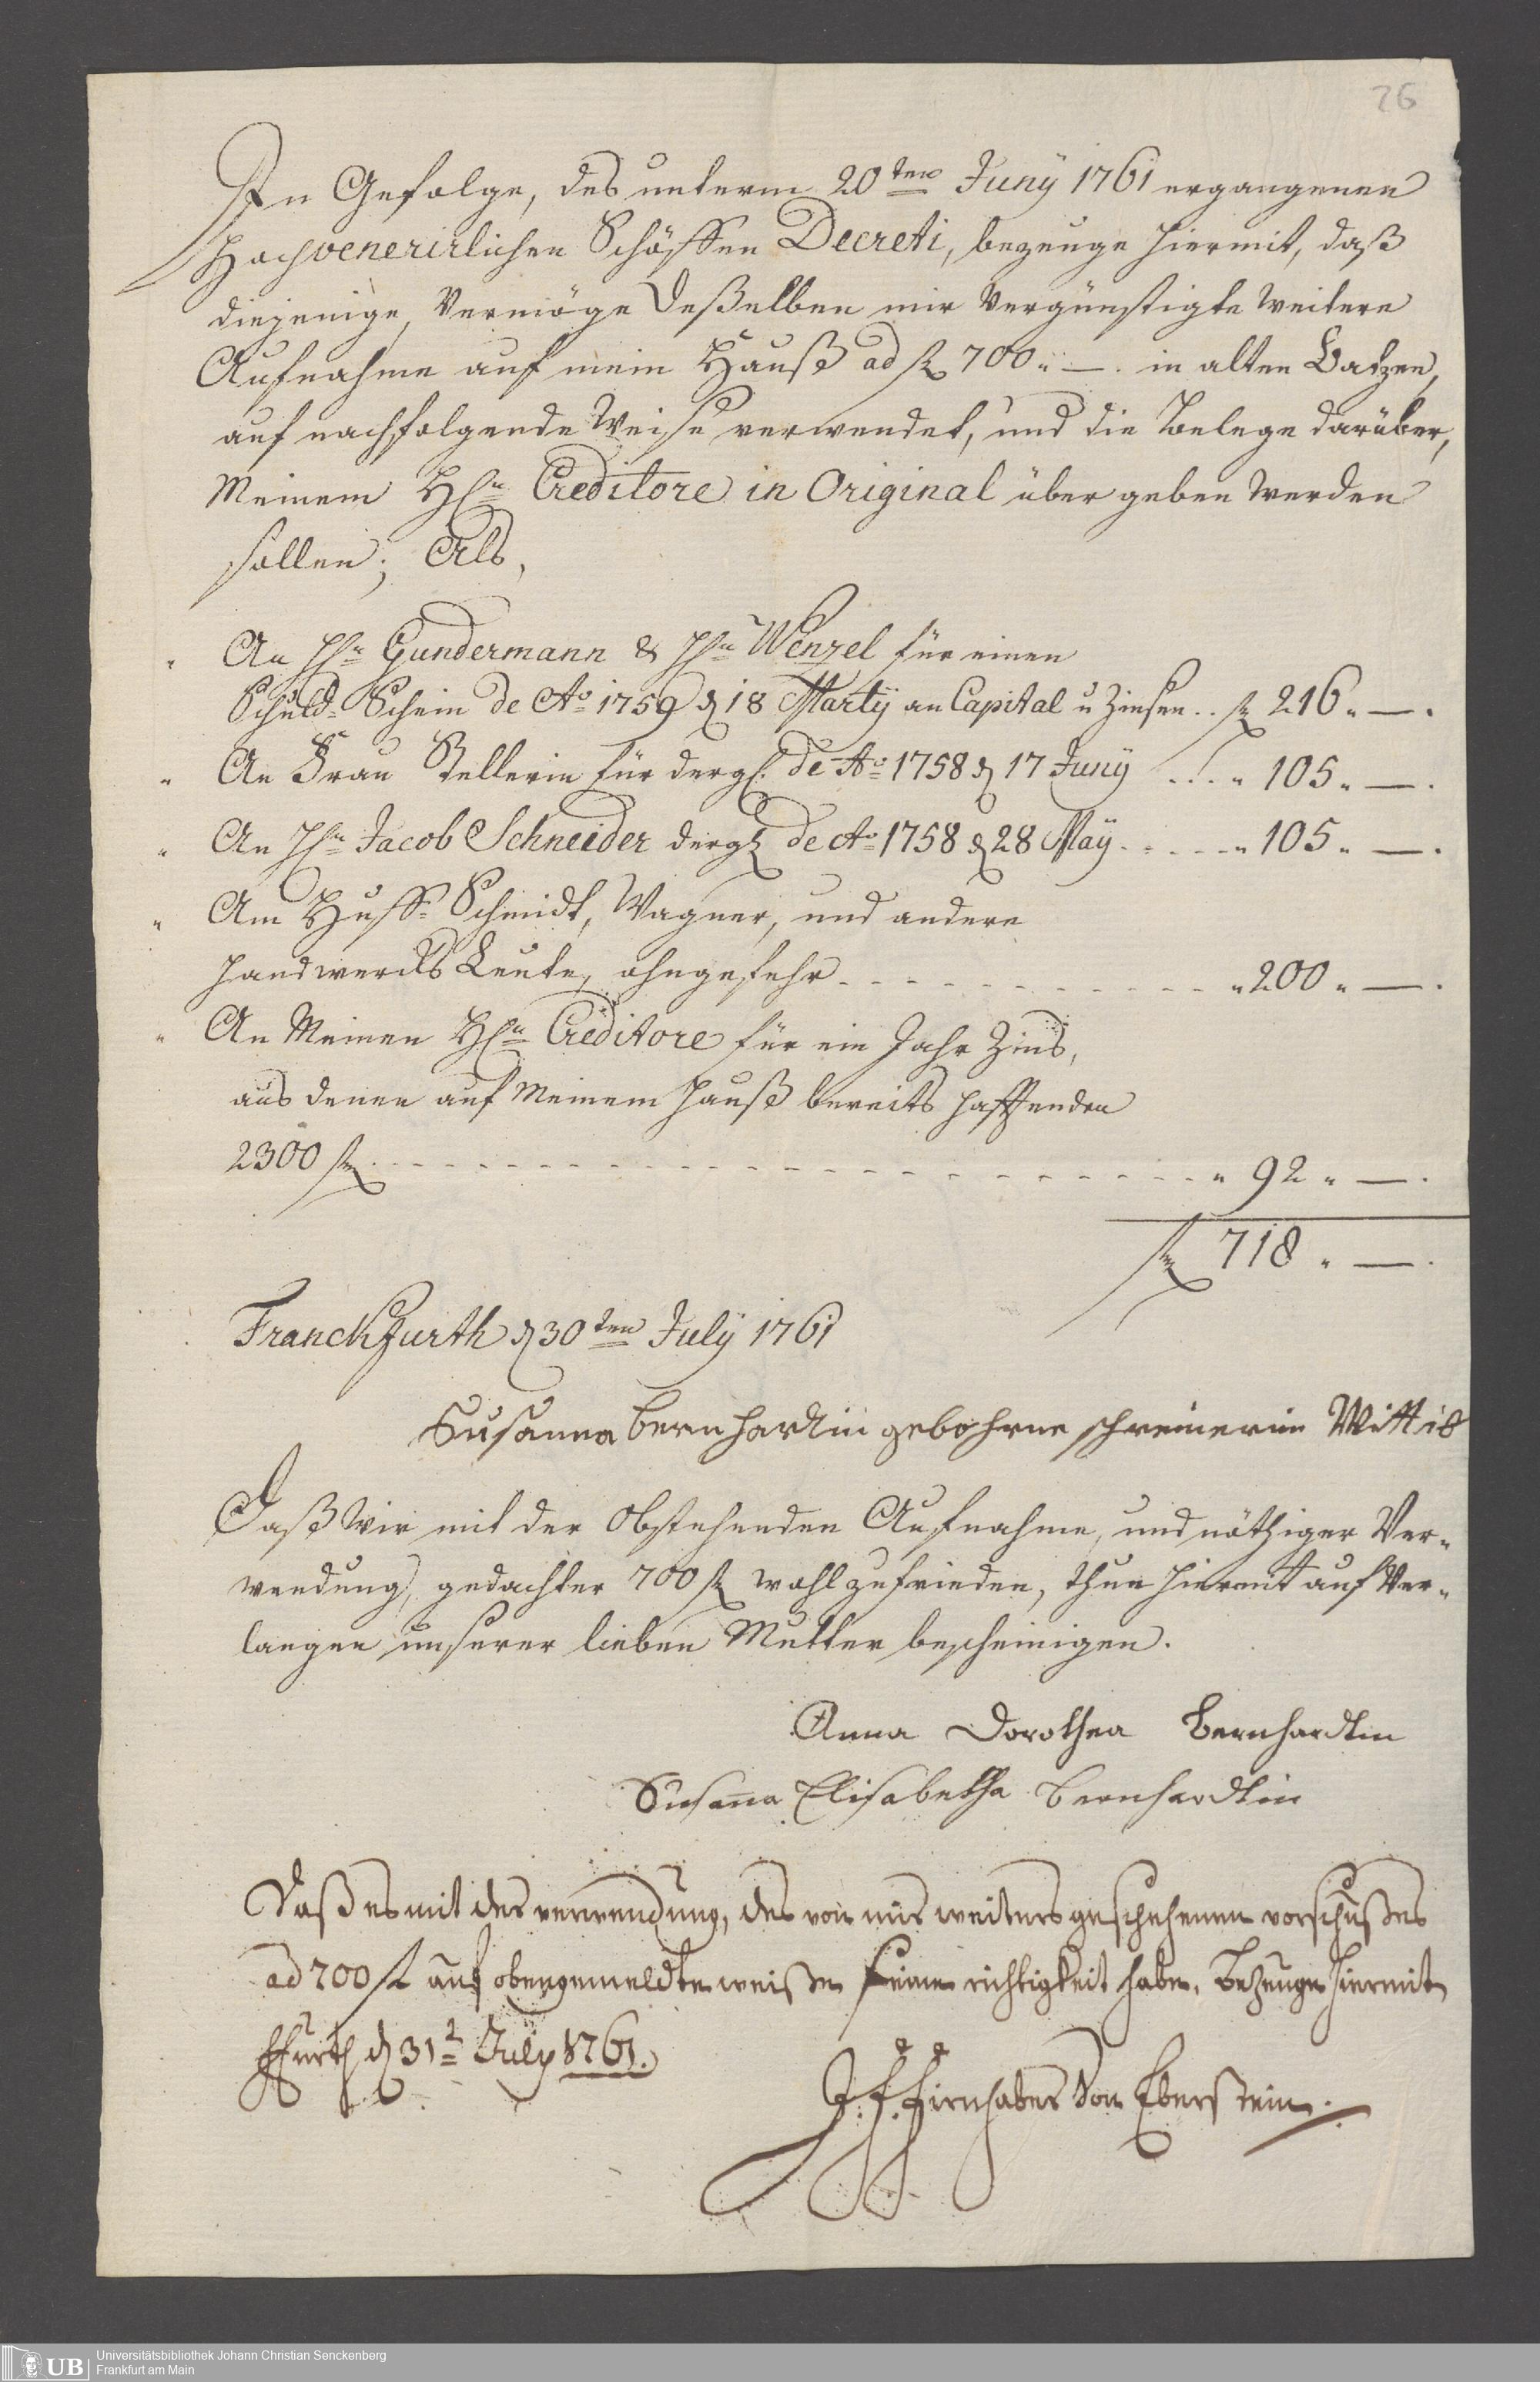 26
In Gefolge, des unterm 20ten Juny 1761 ergangenen
Hochvenerirlichen Schöffen Decreti, bezeuge hiermit, daß
diejenige, Vermöge deßelben mir Vergünstigte weitere
Aufnahme auf mein Hauß ad fl 700 " —. in alten Batzen,
auf nachfolgende Weise verwendet, und die Belege darüber,
Meinem Hhn Creditore in Original über geben werden
sollen; Als,
" An Hhn Gundermann & Hhn Wenzel für einen
Schuld-Schein de Ao 1759 d 18 Martÿ an Capital u Zinsen .. fl 216 " —.
" An Frau Stellerin für dergl. de Ao 1758 d 17 Junÿ .... " 105 " —.
" An Hhn Jacob Schneider dergl de Ao 1758 d 28 Maÿ ..... " 105 " —.
" Am Huff-Schmidt, Wagner, und andere
Handwercks Leute, ohngefehr - - - - - - " 200 " —.
" An Meinen Hhn Creditore für ein Jahr Zins,
aus denen auf Meinem Hauß bereits hafftenden
2300 fl - - - - - - " 92 " —.
fl 718 " —.
Franckfurth d 30ten Julÿ 1761
Susanna Bernhardtin gebohrne schreinerin Wittib
Daß Wir mit der Obstehenden Aufnahme, und nöthiger Ver-
wendung, gedachter 700 fl wohl zufrieden, thun hiermit auf Ver-
langen unserer lieben Mutter bescheinigen.
Anna Dorothea Bernhardtin
Susana Elisabetha Bernhardtin
Daß es mit der verwendung, des von mir weiters geschehenen vorschußes
ad 700 fl auf obengemeldte weiße seine richtigkeit habe, bezeuge hiermit
ffurth d 31t Julÿ 1761.
J. f. Firnhaber Von Eberstein.
UB
Universitätsbibliothek Johann Christian Senckenberg
Frankfurt am Main